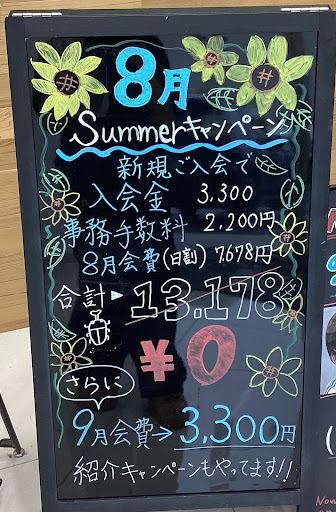 8月
Summerキャンペーン
新規ご入会で
入会金 3,300
事務手数料 2,200円
8月会費(日割) 7678円
合計▶13,178
¥0
さらに
9月会費→3,300円
紹介キャンペーンもやってます!!
Now